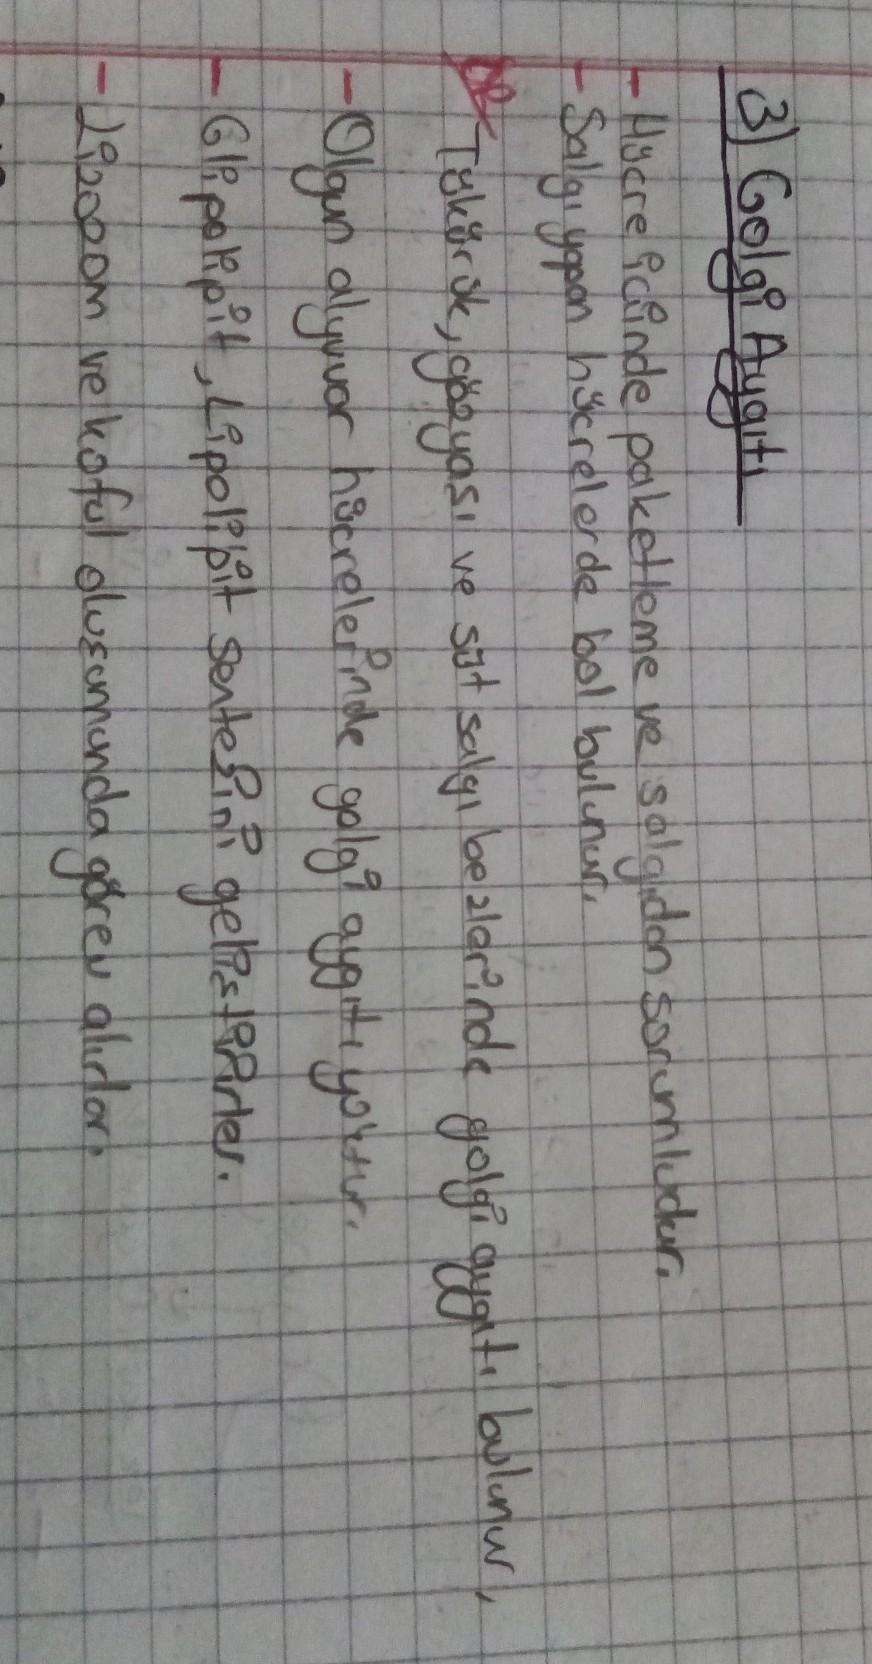 3) Golgi Aygıtı
- Hücre içinde paketleme ve salgıdan sorumludur.
- Salgı yapan hücrelerde bol bulunur.
Tükürük, gözyaşı ve süt salgı bezlerinde golgi aygıtı bulunur,
- Olgun alyuvar hücrelerinde golgi aygıtı yoktur.
- Glipolipit, Lipolipit sentezini geliştirirler.
- Lizozom ve koful oluşumunda görev alırlar.